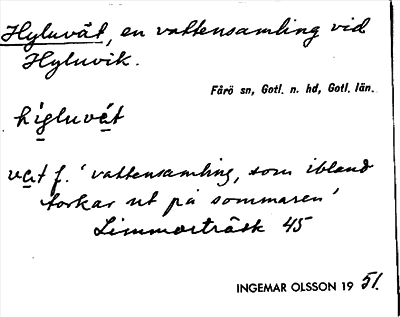 Hyluvät, en vattensamling vid
Hyluvik.
Fårö sn, Gotl. n. hd, Gotl. län.
hi̱gluvá̱t
va̱t f. 'vattensamling, som ibland
torkar ut på sommaren'
Limmorträsk 45
INGEMAR OLSSON 19 51.